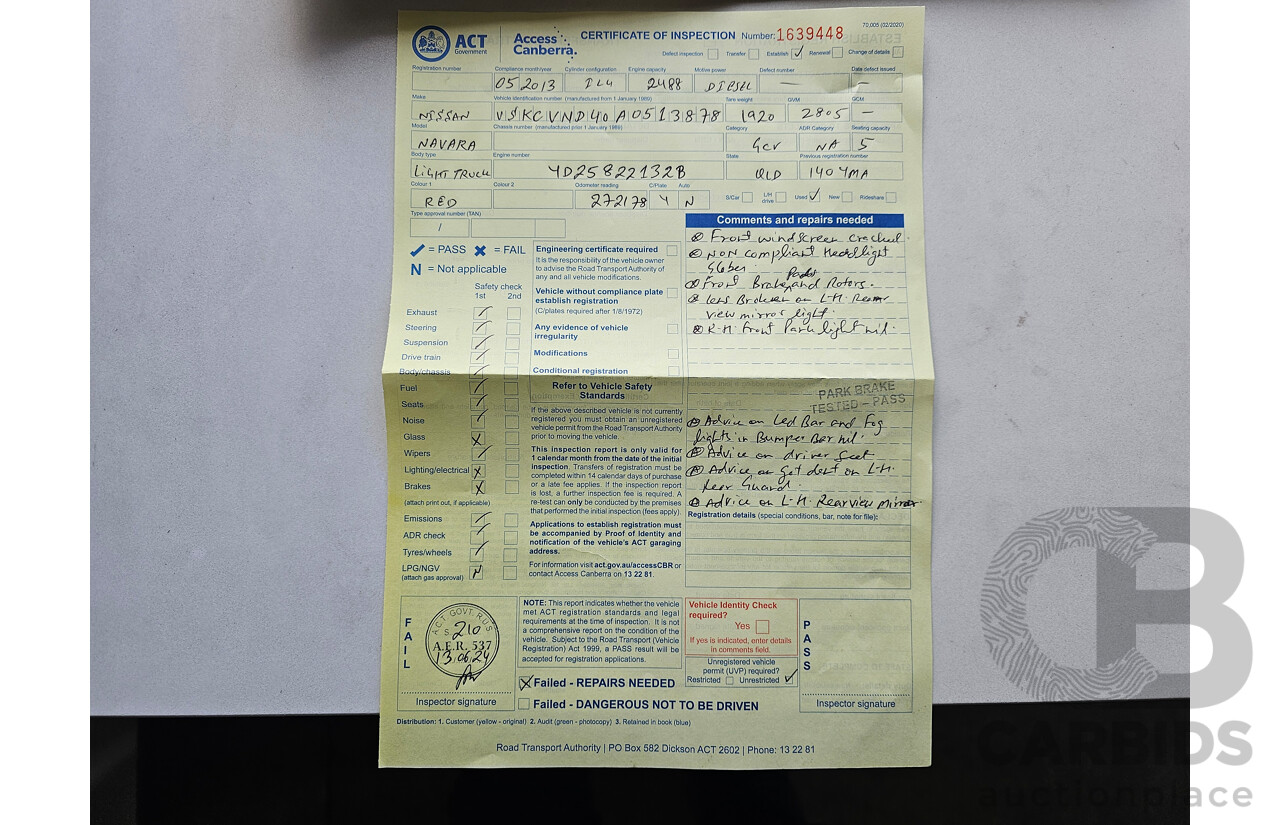 ACT Government
Access Canberra.
CERTIFICATE OF INSPECTION Number: 1639448
70,005 (02/2020)
Defect inspection Transfer Establish ✓ Renewal Change of details
Registration number Compliance month/year Cylinder configuration Engine capacity Motive power Defect number Date defect issued
05 2013 IL4 2488 DIESEL — —
Make Vehicle identification number (manufactured from 1 January 1989) Tare weight GVM GCM
NISSAN VSKCVND40A0513878 1920 2805 —
Model Chassis number (manufactured prior 1 January 1989) Category ADR Category Seating capacity
NAVARA GCV NA 5
Body type Engine number State Previous registration number
LIGHT TRUCK YD25822132B QLD 140YMA
Colour 1 Colour 2 Odometer reading C/Plate Auto
RED 272178 Y N
S/Car L/H drive Used ✓ New Rideshare
Type approval number (TAN)
/
✓ = PASS ✖ = FAIL
N = Not applicable
Safety check
1st 2nd
Exhaust
Steering
Suspension
Drive train
Body/chassis
Fuel
Seats
Noise
Glass X
Wipers
Lighting/electrical X
Brakes X
(attach print out, if applicable)
Emissions
ADR check
Tyres/wheels
LPG/NGV N
(attach gas approval)
Engineering certificate required
It is the responsibility of the vehicle owner
to advise the Road Transport Authority of
any and all vehicle modifications.
Vehicle without compliance plate
establish registration
(C/plates required after 1/8/1972)
Any evidence of vehicle
irregularity
Modifications
Conditional registration
Refer to Vehicle Safety
Standards
If the above described vehicle is not currently
registered you must obtain an unregistered
vehicle permit from the Road Transport Authority
prior to moving the vehicle.
This inspection report is only valid for
1 calendar month from the date of the initial
inspection. Transfers of registration must be
completed within 14 calendar days of purchase
or a late fee applies. If the inspection report
is lost, a further inspection fee is required. A
re-test can only be conducted by the premises
that performed the initial inspection (fees apply).
Applications to establish registration must
be accompanied by Proof of Identity and
notification of the vehicle's ACT garaging
address.
For information visit act.gov.au/accessCBR or
contact Access Canberra on 13 22 81.
Comments and repairs needed
Front windscreen cracked.
NON compliant Headlight
Globes
Front Brake Pads and Rotors.
Lens Broken on L-H. Rear
view mirror light.
R-H. Front Park light nil.
PARK BRAKE
TESTED - PASS
Advice on Led Bar and Fog
lights in Bumper Bar nil.
Advice on driver Seat
Advice on get dent on L-H.
Rear Guard.
Advice on L-H. Rearview mirror
Registration details (special conditions, bar, note for file):
FAIL
ACT GOVT. RUS
S 210
A.E.R. 537
13.06.24
Inspector signature
NOTE: This report indicates whether the vehicle
met ACT registration standards and legal
requirements at the time of inspection. It is not
a comprehensive report on the condition of the
vehicle. Subject to the Road Transport (Vehicle
Registration) Act 1999, a PASS result will be
accepted for registration applications.
X Failed - REPAIRS NEEDED
Failed - DANGEROUS NOT TO BE DRIVEN
Vehicle Identity Check
required?
Yes
If yes is indicated, enter details
in comments field.
Unregistered vehicle
permit (UVP) required?
Restricted Unrestricted ✓
PASS
Inspector signature
Distribution: 1. Customer (yellow - original) 2. Audit (green - photocopy) 3. Retained in book (blue)
Road Transport Authority | PO Box 582 Dickson ACT 2602 | Phone: 13 22 81
CB
CARBIDS
auctionplace